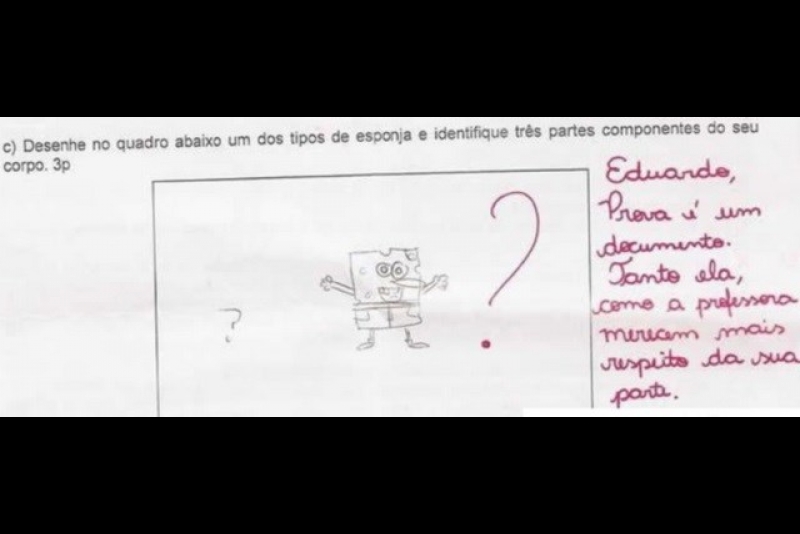 c) Desenhe no quadro abaixo um dos tipos de esponja e identifique três partes componentes do seu
corpo. 3p
Eduardo,
Prova é um
documento.
Tanto ela,
como a professora
merecem mais
respeito da sua
parte.
?
?